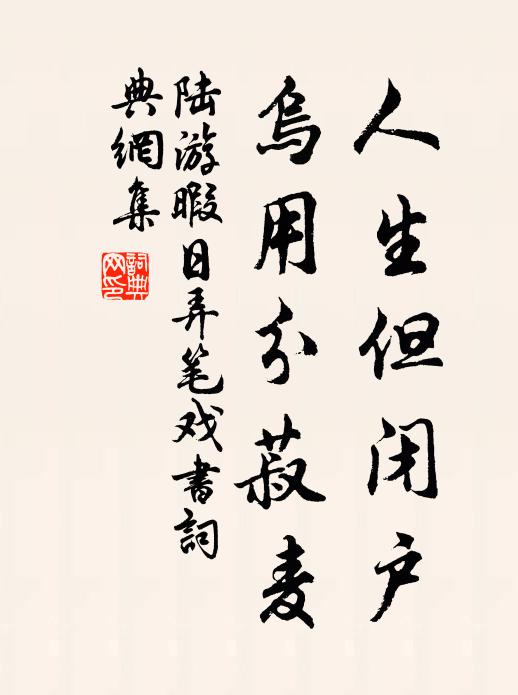 人生但闭户
乌用分菽麦
陆游暇日弄笔戏书词
典網集
詞典
网印